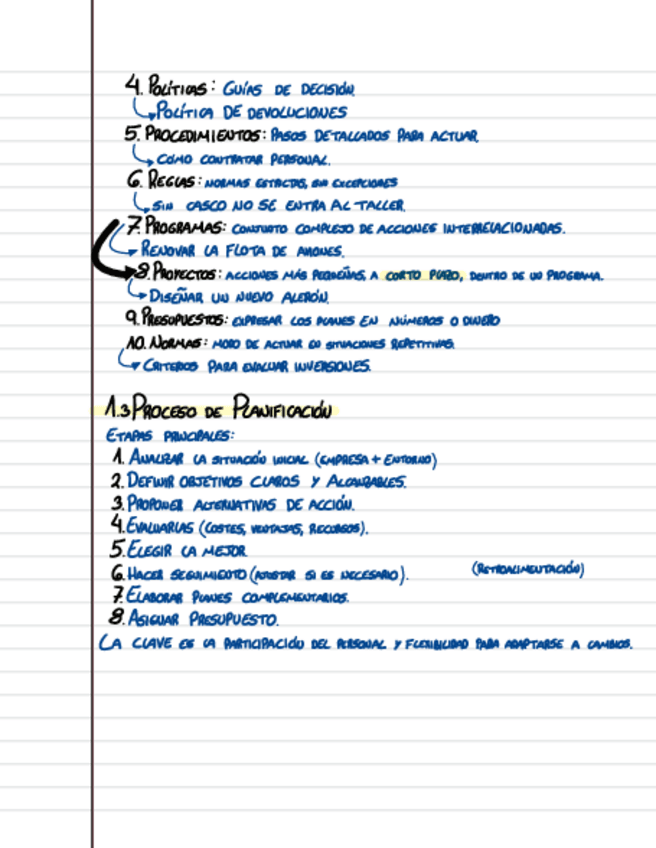 4. Políticas: Guías de decisión.
Política de devoluciones
5. Procedimientos: Pasos detallados para actuar.
Cómo contratar personal.
6. Reglas: normas estrictas, sin excepciones
Sin casco no se entra al taller.
7. Programas: conjunto complejo de acciones interrelacionadas.
Renovar la flota de aviones.
8. Proyectos: acciones más pequeñas, a corto plazo, dentro de un programa.
Diseñar un nuevo alerón.
9. Presupuestos: expresar los planes en números o dinero
10. Normas: modo de actuar en situaciones repetitivas.
Criterios para evaluar inversiones.
1.3 Proceso de Planificación
Etapas principales:
1. Analizar la situación inicial (empresa + entorno)
2. Definir objetivos claros y alcanzables.
3. Proponer alternativas de acción.
4. Evaluarlas (costes, ventajas, recursos).
5. Elegir la mejor
6. Hacer seguimiento (ajustar si es necesario). (Retroalimentación)
7. Elaborar planes complementarios.
8. Asignar presupuesto.
La clave es la participación del personal y flexibilidad para adaptarse a cambios.